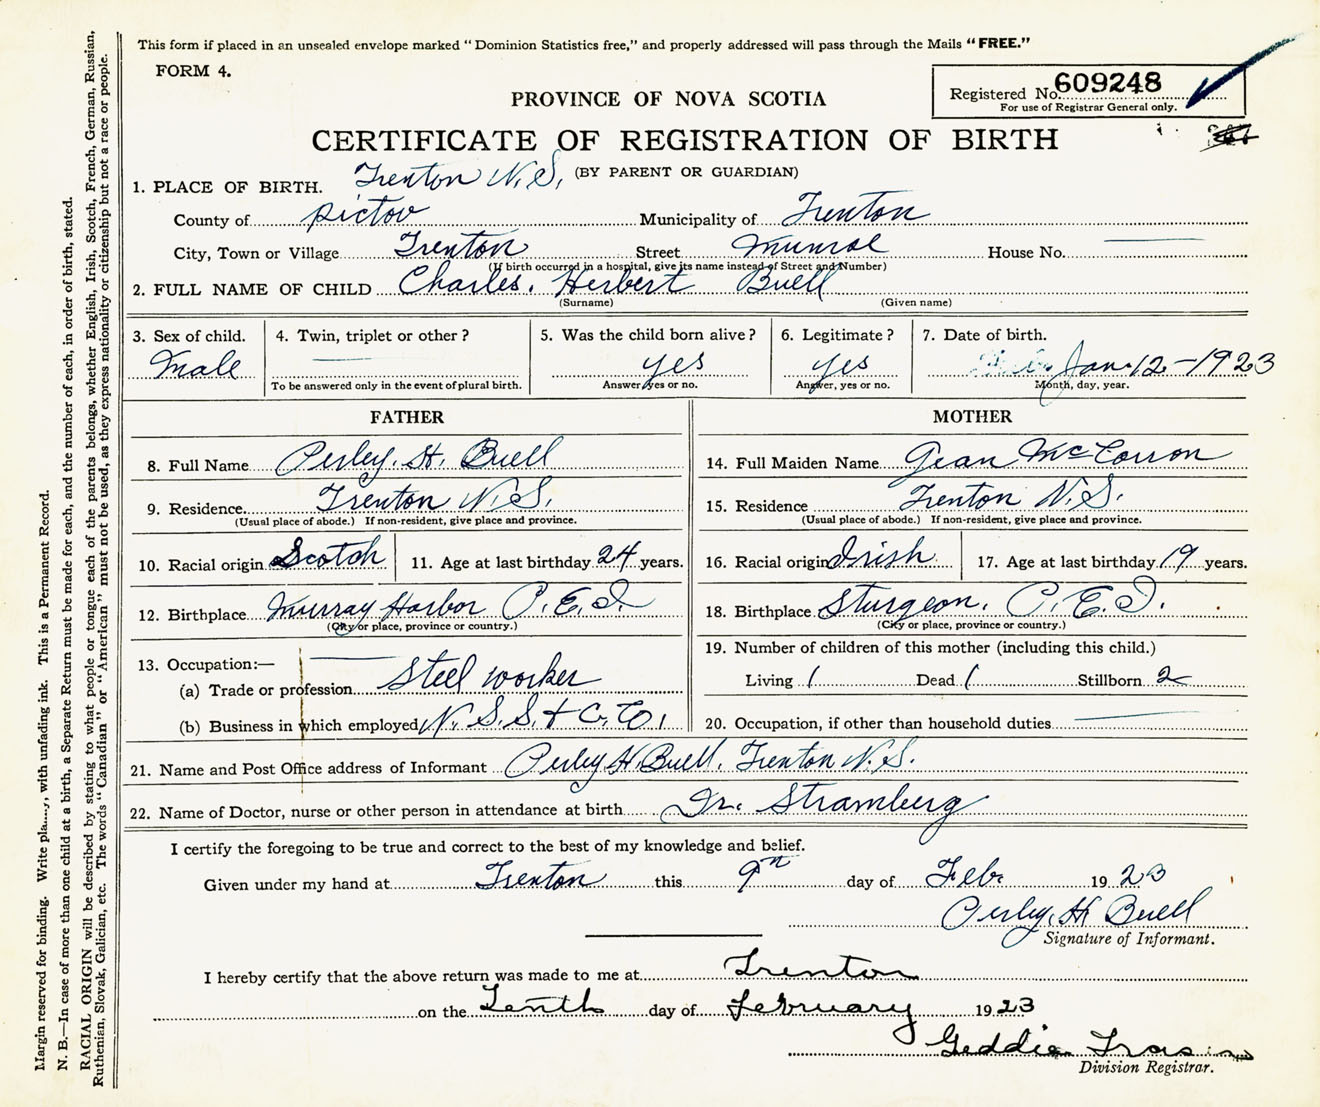 This form if placed in an unsealed envelope marked “ Dominion Statistics free,” and properly addressed will pass through the Mails “FREE.”
FORM 4.
Registered No. 609248
For use of Registrar General only.
PROVINCE OF NOVA SCOTIA
CERTIFICATE OF REGISTRATION OF BIRTH
(BY PARENT OR GUARDIAN)
1. PLACE OF BIRTH. Trenton N.S.
County of Pictou Municipality of Trenton
City, Town or Village Trenton Street Munroe House No. ——
(If birth occurred in a hospital, give its name instead of Street and Number)
2. FULL NAME OF CHILD Charles. Herbert Buell
(Surname) (Given name)
3. Sex of child. 4. Twin, triplet or other ? 5. Was the child born alive? 6. Legitimate ? 7. Date of birth.
Male —— yes yes Jan. 12-1923
To be answered only in the event of plural birth. Answer, yes or no. Answer, yes or no. Month, day, year.
FATHER MOTHER
8. Full Name Perley. H. Buell 14. Full Maiden Name Jean McCorron
9. Residence Trenton N.S. 15. Residence Trenton N.S.
(Usual place of abode.) If non-resident, give place and province. (Usual place of abode.) If non-resident, give place and province.
10. Racial origin Scotch 11. Age at last birthday 24 years. 16. Racial origin Irish 17. Age at last birthday 19 years.
12. Birthplace Murray Harbor P.E.I. 18. Birthplace Sturgeon. P.E.I.
(City or place, province or country.) (City or place, province or country.)
13. Occupation:— ——
19. Number of children of this mother (including this child.)
(a) Trade or profession Steel worker Living 1 Dead 1 Stillborn 2
(b) Business in which employed N.S.S. & C. Co. 20. Occupation, if other than household duties ——
21. Name and Post Office address of Informant Perley H. Buell. Trenton N.S.
22. Name of Doctor, nurse or other person in attendance at birth Dr. Stramberg
I certify the foregoing to be true and correct to the best of my knowledge and belief.
Given under my hand at Trenton this 9th day of Feb. 1923
Perley. H. Buell
Signature of Informant.
I hereby certify that the above return was made to me at Trenton
on the Tenth day of February 1923
Geddie
Division Registrar.
Margin reserved for binding. Write pla....y, with unfading ink. This is a Permanent Record.
N. B.—In case of more than one child at a birth, a Separate Return must be made for each, and the number of each, in order of birth, stated.
RACIAL ORIGIN will be described by stating to what people or tongue each of the parents belongs, whether English, Irish, Scotch, French, German, Russian,
Ruthenian, Slovak, Galician, etc. The words “Canadian” or “American” must not be used, as they express nationality or citizenship but not a race or people.